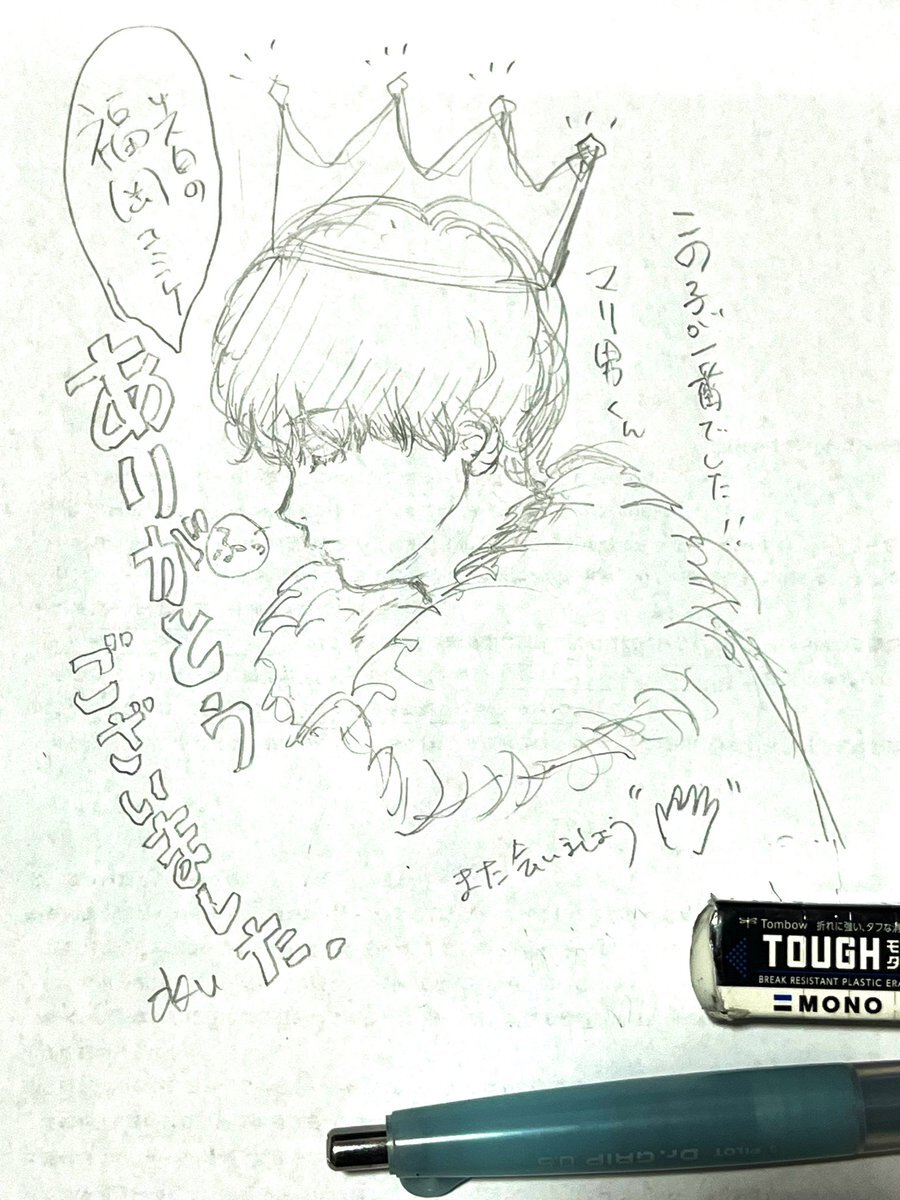 この子が一番でした
マリ男くん
先日の
福岡コミティ
ありがとう
ございました。
また会いましょう
Tombow 折れに強い、タフな消
TOUGH モ
BREAK RESISTANT PLASTIC ERA
MONO
PILOT Dr.GRIP